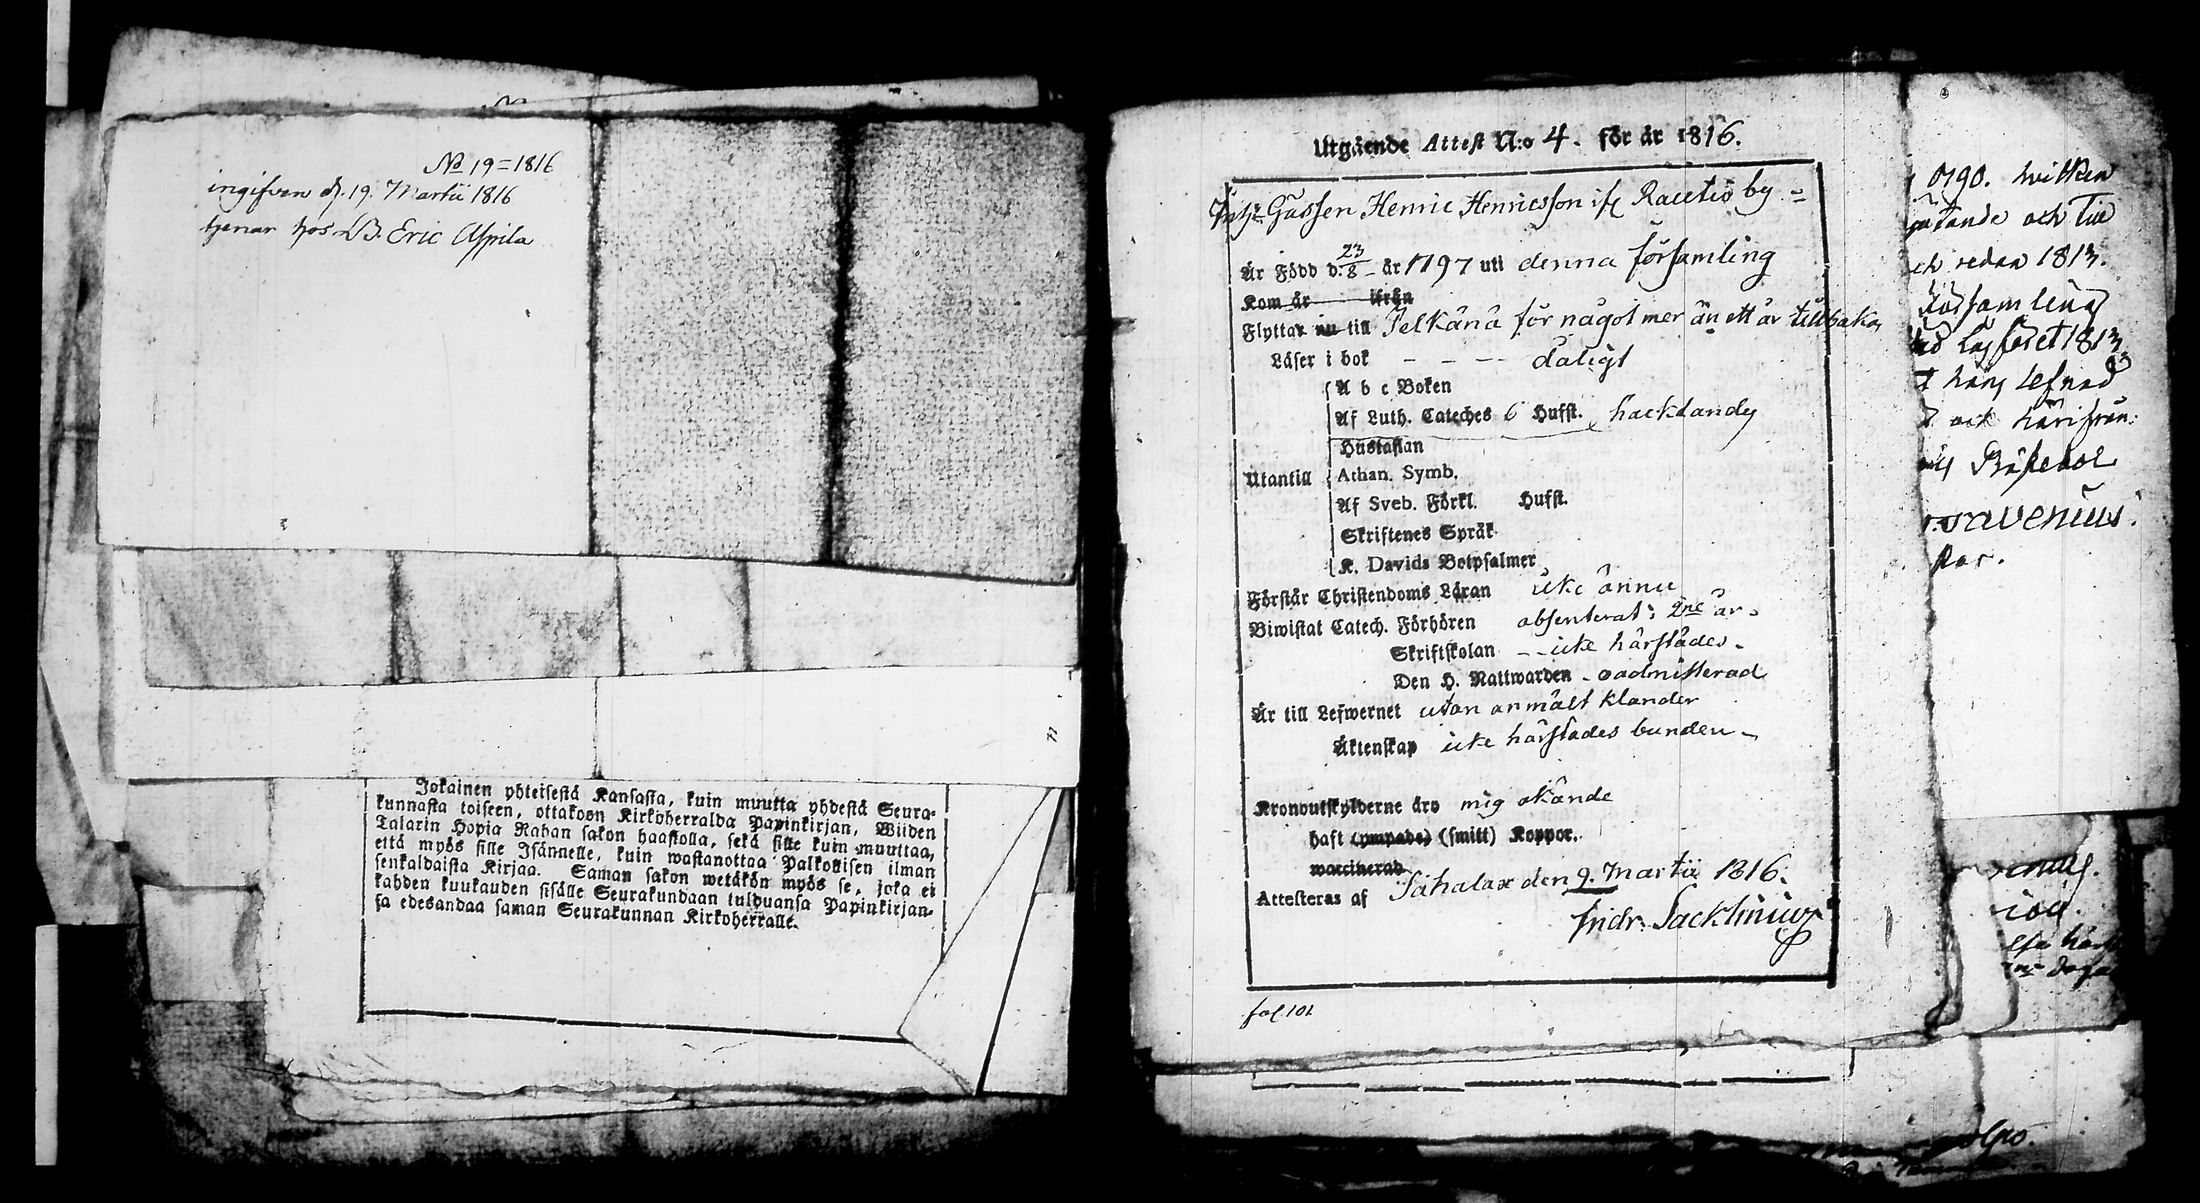 No 19=1816
ingifven d. 19. Martii 1816
tjenar hos Eric Aspila
Jokainen yhteisestä Kansasta, kuin muutta yhdestä Seura-
kunnasta toiseen, ottakoon Kirkoherralda Papinkirjan, Wiiden
Talarin Hopia Rahan sakon haastolla, sekä sille kuin muuttaa,
että myös sille Isännelle, kuin wastanottaa Palkollisen ilman
senkaldaista Kirjaa. Saman sakon wetäkön myös se, joka ei
kahden kuukauden sisälle Seurakundaan tulduansa Papinkirjan-
sa edesandaa saman Seurakunnan Kirkoherralle.
Utgående Attest N:o 4. för år 1816.
Gossen Henric Henricsson if by
Är Född d. 23/8 år 1797 uti denna församling
Kom år ifrån
Flyttar nu till Pelkänä för något mer än ett år tillbaka
Läser i bok - - - dåligt
A b c Boken
Af Luth. Cateches 6 Hufst. hacktandes
Hustaflan
Utantill Athan. Symb.
Af Sveb. Förkl. Hufst.
Skriftenes Språk
K. Davids Botpsalmer
Förstår Christendoms Läran icke ännu
Biwistat Catech. Förhören absenterat i 2ne år
Skriftskolan - - icke härstädes
Den H. Nattwarden - oadmitterad
Är till Lefwernet utan anmält klander
Äktenskap icke härstädes bunden
Kronoutskylderne äro mig okände
haft (ympade) (smitt) Koppor.
waccinerad
Attesteras af Sahalax den 9. Martii 1816.
Andr. Sacklinius
fol. 101
1790. hvilken
och till
redan 1813.
församling
1813
lefnad
och härifrån
Par.